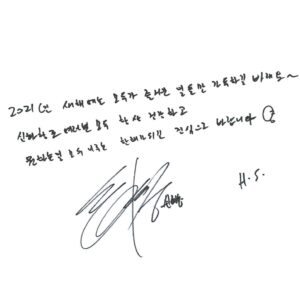 2021년 새해에는 모두가 즐거운 일들만 가득하길 바래요~
신화창조 여러분 모두 항상 건강하고
원하는걸 모두 이루는 한해되길 진심으로 바랍니다
H.S.